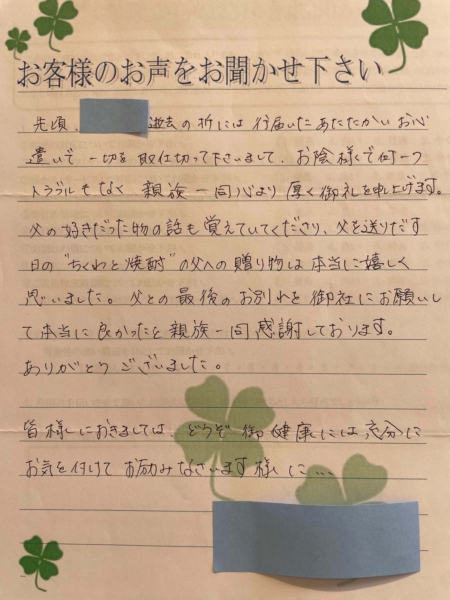 お客様のお声をお聞かせ下さい
先頃、逝去の折には行届いたあたたかいお心
遣いで一切を取仕切って下さいまして、お陰様で何一つ
トラブルもなく親族一同心より厚く御礼を申上げます。
父の好きだった物の話も覚えていてくださり、父を送りだす
日の"ちくわと焼酎"の父への贈り物は本当に嬉しく
思いました。父との最後のお別れを御社にお願いし
て本当に良かったと親族一同感謝しております。
ありがとうございました。
皆様におきましては、どうぞ御健康には充分に
お気を付けてお励みなさいます様に...